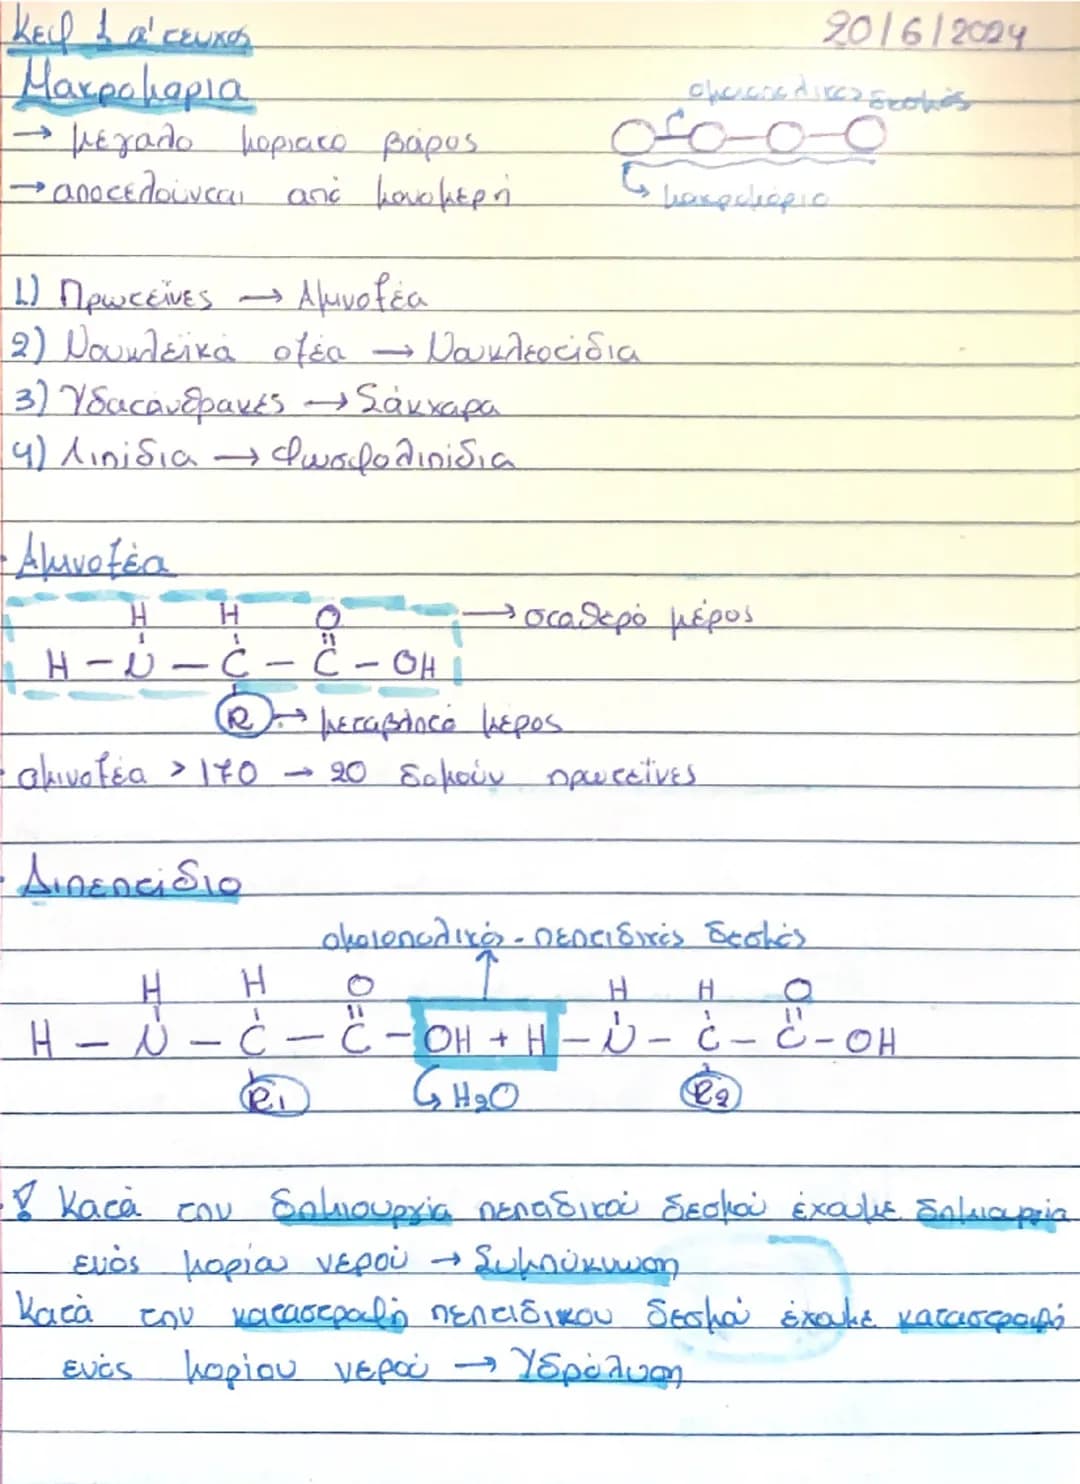 Κεφ 1 α' τεύχος
20/6/2024
Μακρομορια
→ μεγαλο μοριακο βάρος
→ αποτελούνται από μονομερή
ομοιοπολικος δεσμός
μακρομόριο
1) Πρωτεΐνες → Αμινοξέα
2) Νουκλεϊκά οξέα → Νουκλεοτίδια
3) Υδατάνθρακες → Σάκχαρα
4) Λιπίδια → Φωσφολιπίδια
Αμινοξέα
→ σταθερό μέρος
H H O
H - N - C - C - OH
R → μεταβλητό μέρος
αμινοξέα > 170 → 20 δομούν πρωτεΐνες
Διπεπτίδιο
ομοιοπολικός - πεπτιδικός δεσμός
H H O H H O
H - N - C - C - OH + H - N - C - C - OH
R1 H2O R2
! Κατά την δημιουργία πεπτιδικού δεσμού έχουμε δημιουργία
ενός μορίου νερού → Συμπύκνωση
Κατά την καταστροφή πεπτιδικου δεσμού έχουμε καταστροφή
ενός μορίου νερού → Υδρόλυση